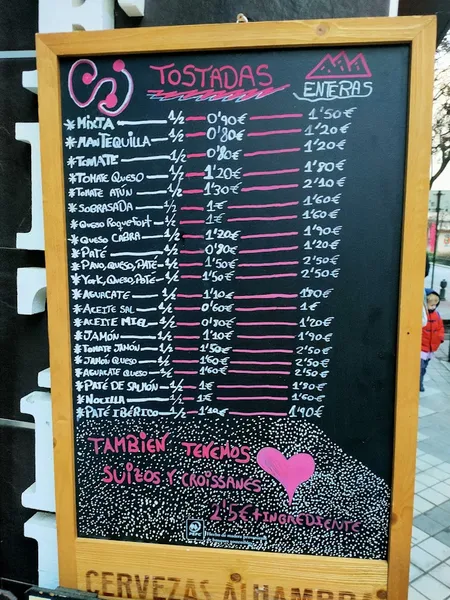 TOSTADAS
ENTERAS
*MIXTA 1/2 0'90€ 1'50€
*MANTEQUILLA 1/2 0'80€ 1'20€
*TOMATE 1/2 0'80€ 1'20€
*TOMATE QUESO 1/2 1'20€ 1'80€
*TOMATE ATÚN 1/2 1'30€ 2'10€
*SOBRASADA 1/2 1€ 1'60€
*QUESO ROQUEFORT 1/2 1€ 1'60€
*QUESO CABRA 1/2 1'20€ 1'90€
*PATÉ 1/2 0'80€ 1'20€
*PAVO, QUESO, PATÉ 1/2 1'50€ 2'50€
*YORK, QUESO, PATÉ 1/2 1'50€ 2'50€
*AGUACATE 1/2 1'10€ 1'80€
*ACEITE SAL 1/2 0'60€ 1€
*ACEITE MIEL 1/2 0'80€ 1'20€
*JAMÓN 1/2 1'20€ 1'90€
*TOMATE JAMÓN 1/2 1'50€ 2'50€
*JAMÓN QUESO 1/2 1'60€ 2'50€
*AGUACATE QUESO 1/2 1'60€ 2'50€
*PATÉ DE SALMÓN 1/2 1€ 1'80€
*NOCILLA 1/2 1€ 1'60€
*PATÉ IBÉRICO 1/2 1'10€ 1'90€
TAMBIEN TENEMOS
SUIZOS Y CROISSANES
1'5€ + INGREDIENTE
CERVEZAS ALHAMBRA